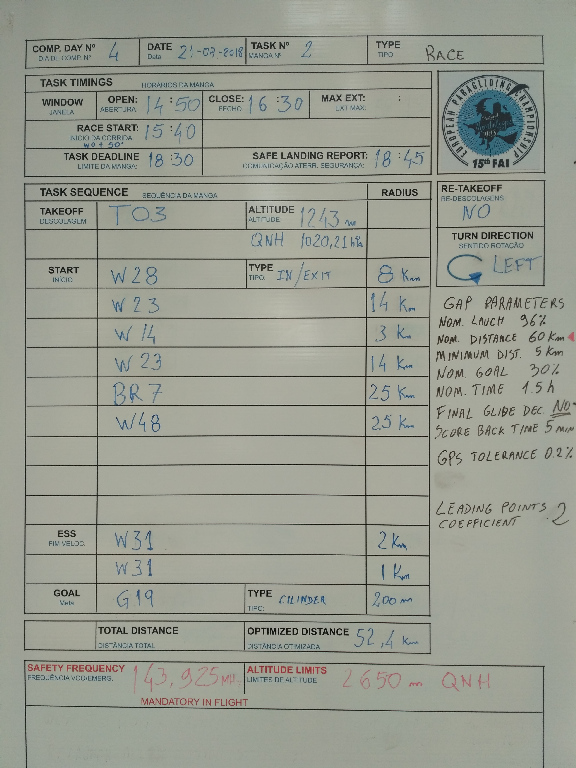 COMP. DAY Nº 4 DATE 21-07-2018 TASK Nº 2 TYPE RACE
DIA DE COMP. Nº Data MANGA Nº TIPO
TASK TIMINGS HORÁRIOS DA MANGA
WINDOW OPEN: 14:50 CLOSE: 16:30 MAX EXT: :
JANELA ABERTURA: FECHO: EXT MAX:
RACE START: 15:40
INÍCIO DA CORRIDA
TASK DEADLINE 18:30 SAFE LANDING REPORT: 18:45
LIMITE DA MANGA: COMUNICAÇÃO ATERR. SEGURANÇA:
EUROPEAN PARAGLIDING CHAMPIONSHIP
15th FAI
TASK SEQUENCE SEQUÊNCIA DA MANGA RADIUS
TAKEOFF TO3 ALTITUDE 1243 m
DESCOLAGEM ALTITUDE:
QNH 1020,21 hPa
START W28 TYPE IN/EXIT 8 Km
INÍCIO TIPO:
W23 14 Km
W14 3 Km
W23 14 Km
BR7 25 Km
W48 25 Km
ESS W31 2 Km
FIM VELOC.
W31 1 Km
GOAL G19 TYPE CILINDER 200 m
Meta TIPO:
TOTAL DISTANCE OPTIMIZED DISTANCE 52,4 Km
DISTÂNCIA TOTAL DISTÂNCIA OTIMIZADA
RE-TAKEOFF
RE-DESCOLAGENS
NO
TURN DIRECTION
SENTIDO ROTAÇÃO
LEFT
GAP PARAMETERS
NOM. LAUCH 96%
NOM. DISTANCE 60 Km
MINIMUM DIST. 5 Km
NOM GOAL 30%
NOM. TIME 1.5 h
FINAL GLIDE DEC. NO
SCORE BACK TIME 5 MIN
GPS TOLERANCE 0.2%
LEADING POINTS 2
COEFFICIENT
SAFETY FREQUENCY 143,925 MHz ALTITUDE LIMITS 2650 m QNH
FREQUÊNCIA VOO/EMERG. LIMITES DE ALTITUDE
MANDATORY IN FLIGHT